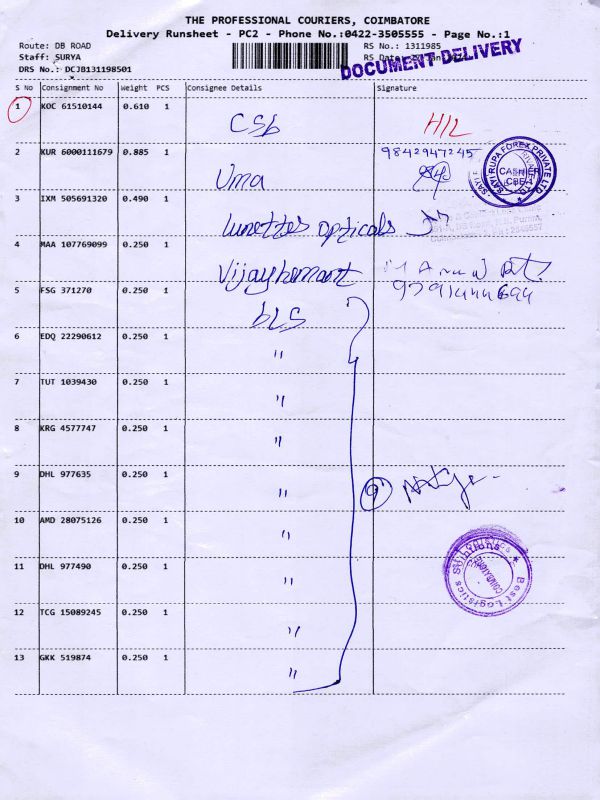 THE PROFESSIONAL COURIERS, COIMBATORE
Delivery Runsheet - PC2 - Phone No.:0422-3505555 - Page No.:1
Route: DB ROAD
RS No.: 1311985
Staff: SURYA
RS Date
DRS No.: DCJB131198501
DOCUMENT DELIVERY
S No Consignment No Weight PCS Consignee Details Signature
1 KOC 61510144 0.610 1 CSB H/L
2 KUR 6000111679 0.885 1 Uma 9842947245
SAYI RUPA FOREX PRIVATE LTD
CASHIER
CBE-1
3 IXM 505691320 0.490 1 Lunettes opticals
4 MAA 107769099 0.250 1 Vijayhemant
9791444694
5 FSG 371270 0.250 1 BLS
6 EDQ 22290612 0.250 1 "
7 TUT 1039430 0.250 1 "
8 KRG 4577747 0.250 1 "
9 DHL 977635 0.250 1 " 9
10 AMD 28075126 0.250 1 "
11 DHL 977490 0.250 1 "
Best Logistics Solutions
COIMBATORE
12 TCG 15089245 0.250 1 "
13 GKK 519874 0.250 1 "